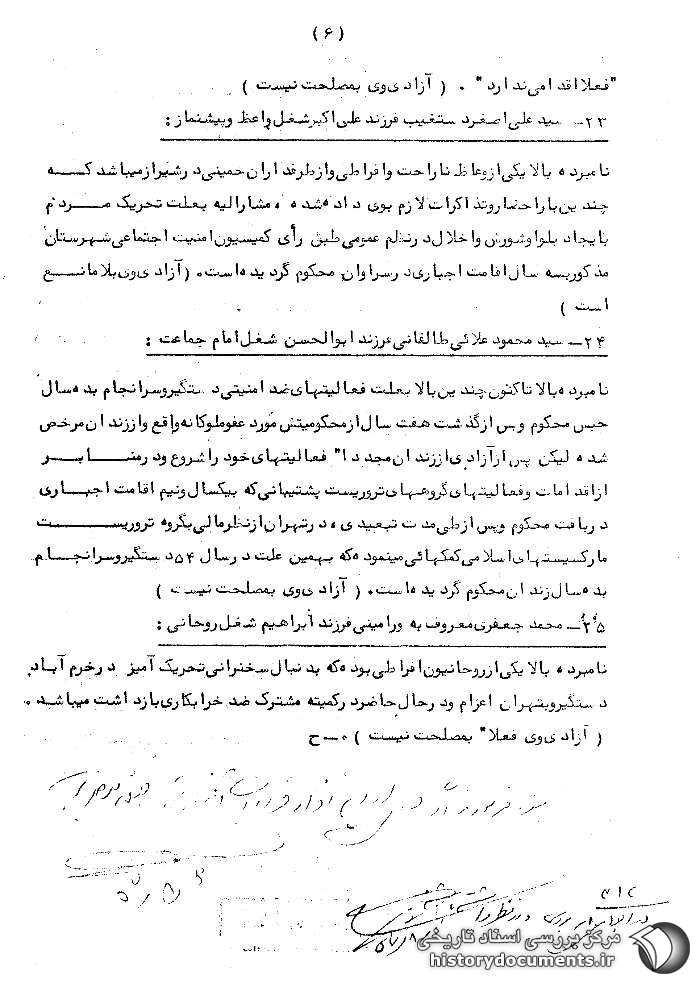 (۶)
"فعلا اقدامی ندارد" . ( آزادی وی بمصلحت نیست )
۲۳ـ سید علی اصغر دستغیب فرزند علی اکبر شغل واعظ و پیشنماز :
نامبرده بالا یکی از وعاظ ناراحت و افراطی و از طرفداران خمینی در شیراز میباشد کـــه
چندین بار احضار و تذاکرات لازم بوی داده شده ، مشارالیه بعلت تحریک مـــردم
بایجاد بلوا و شورش و اخلال در نظم عمومی طبق رأی کمیسیون امنیت اجتماعی شهرستان
مذکور بسه سال اقامت اجباری در سراوان محکوم گردیده است. (آزادی وی بلامانـــع
است )
۲۴ـ سید محمود علائی طالقانی فرزند ابوالحسن شغل امام جماعت :
نامبرده بالا تاکنون چندین بار بعلت فعالیتهای ضد امنیتی دستگیر و سرانجام بده سال
حبس محکوم و پس از گذشت هفت سال از محکومیتش مورد عفو ملوکانه واقع و از زندان مرخص
شده لیکن پس از آزادی از زندان مجددا" فعالیتهای خود را شروع و در منـــابـــر
از اقدامات و فعالیتهای گروههای تروریست پشتیبانی که بیکسال و نیم اقامت اجبـــاری
دریافت محکوم و پس از طی مدت تبعیدی ، در تهران از نظر مالی بگروه تروریســـت
مارکسیستهای اسلامی کمکهائی مینمود که بهمین علت در سال ۵۴ دستگیر و سرانجـــام
بده سال زندان محکوم گردیده است. ( آزادی وی بمصلحت نیست )
۲۵ـ محمد جعفری معروف به ورامینی فرزند ابراهیم شغل روحانی :
نامبرده بالا یکی از روحانیون افراطی بوده که بدنبال سخنرانی تحریک آمیز در خرم آباد
دستگیر و بتهران اعزام و در حال حاضر در کمیته مشترک ضد خرابکاری بازداشت میباشد .
( آزادی وی فعلا" بمصلحت نیست ) ۰ـ ح
مرکز بررسی اسناد تاریخی
historydocuments.ir